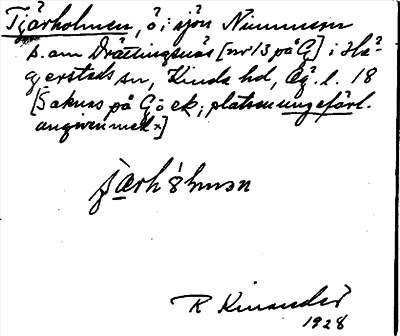 Tjärholmen, ö i sjön Nimmern
s. om Drättingsnäs [nr 13 på G] i Hä-
gerstads sn, Kinda hd, Ög. l. 18
[Saknas på G o ek; platsen ungefärl.
angiven med x]
R Kinander
1928